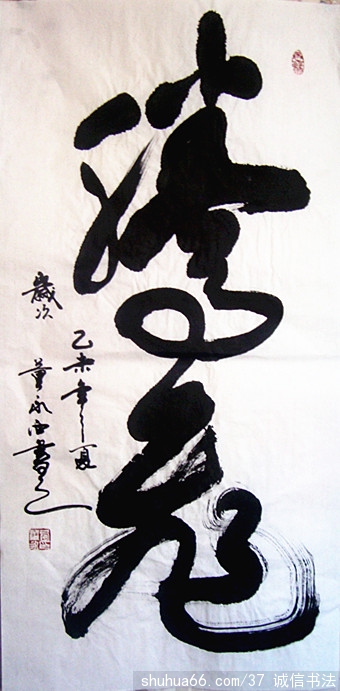 騰飛
歲次
乙未年夏
董永書
shuhua66.com/37 诚信书法